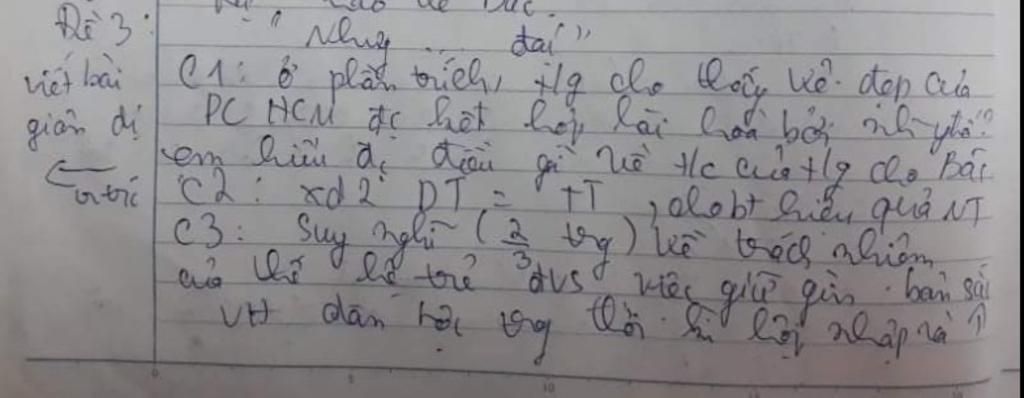 Đề 3: "Nhưng ... đại"
viết bài C1: ở phần trích, t/g cho thấy vẻ đẹp của
giản dị PC HCM đc kết hợp hài hoà bởi nh ytố?
em hiểu đc điều gì về t/c của t/g cho Bác
C2: xđ 2 DT = TT, cho bt hiệu quả NT
C3: Suy nghĩ (2/3 trg) về trách nhiệm
của thế hệ trẻ đvs việc giữ gìn bản sắ
VH dân tộc trg thời kì hội nhập và